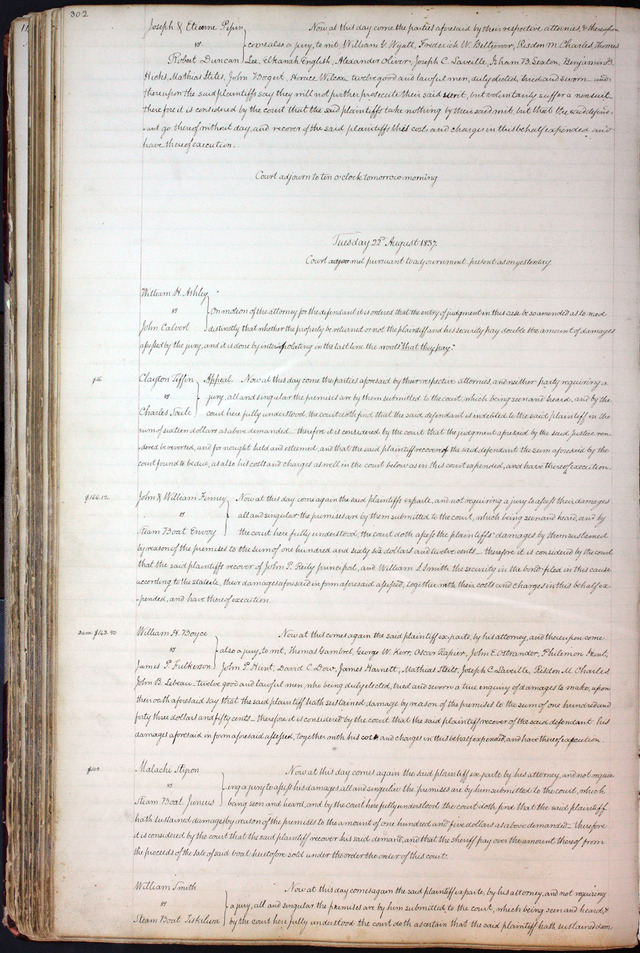 302
Joseph & Etienne Pepin Now at this day come the parties aforesaid by their respective attornies, & thereupon
vs come also a jury, to wit, William G. Wyatt, Frederick W. Beltzener, Risdon M. Charles, Thomas
Robert Duncan Lee, Elkanah English, Alexander Oliver, Joseph C. Laveille, Isham B. Seaton, Benjamin D.
Hicks, Mathias Steitz, John Bogert, Horace Wilcox twelve good and lawful men, duly elected, tried and sworn and
thereupon the said plaintiffs say they will not further prosecute their said writ, but voluntarily suffer a nonsuit
therefore it is considered by the court that the said plaintiffs take nothing by their said writ, but that the said defend-
ant go thereof without day, and recover of the said plaintiffs his costs and charges in this behalf expended and
have thereof execution.
Court adjourn to ten o'clock tomorrow morning
Tuesday 22d August 1837.
Court adjourned pursuant to adjournment, present as on yesterday
William H. Ashley
vs On motion of the attorney for the defendant it is ordered that the entry of judgment in this case be so amended as to read
John Calvert distinctly that whether the property be returned or not the plaintiff and his security pay double the amount of damages
assessed by the jury, and it is done by interpolating in the last line the words "that they pay."
$16 Clayton Tiffin Appeal. Now at this day come the parties aforesaid by their respective attornies, and neither party requiring a
vs jury, all and singular the premises are by them submitted to the court, which being seen and heard, and by the
Charles Soule court here fully understood, the court doth find that the said defendant is indebted to the said plaintiff in the
sum of sixteen dollars as above demanded. therefore it is considered by the court that the judgment aforesaid by the said Justice ren-
dered be reverted, and for nought held and esteemed, and that the said plaintiff recover of the said defendant the sum aforesaid by the
court found to be due, as also his costs and charges as well in the court below as in this court expended, and have thereof execution.
$166.12. John & William Finney Now at this day come again the said plaintiffs exparte, and not requiring a jury to assess their damages
vs all and singular the premises are by them submitted to the court, which being seen and heard, and by
Steam Boat Envoy the court here fully understood, the court doth assess the plaintiffs' damages by them sustained
by reason of the premises to the sum of one hundred and sixty six dollars and twelve cents therefore it is considered by the court
that the said plaintiffs recover of John P. Reily principal, and William L Smith the security in the bond filed in this cause
according to the statute, their damages aforesaid in form aforesaid assessed, together with their costs and charges in this behalf ex-
pended, and have thereof execution.
$143.50 William H. Boyce Now at this comes again the said plaintiff exparte, by his attorney, and thereupon come
vs also a jury, to wit, Thomas Gambrel, George W. Kerr, Oscar Rapier, John E Ostrander, Philemon Hunt,
James P. Fulkerson John P. Hunt, David C. Dow, James Harnett, Mathias Steitz, Joseph C. Laveille, Risdon M. Charles,
John B. Lebeau, twelve good and lawful men, who being duly elected, tried and sworn a true enquiry of damages to make, upon
their oath aforesaid say that the said plaintiff hath sustained damage by reason of the premises to the sum of one hundred and
forty three dollars and fifty cents. therefore it is considered by the court that the said plaintiff recover of the said defendant his
damages aforesaid in form aforesaid assessed, together with his cost and charges in this behalf expended, and have thereof execution.
Malachi Now at this day comes again the said plaintiff exparte by his attorney, and not requir-
vs ing a jury to assess his damages all and singular the premises are by him submitted to the court, which
Steam Boat Junius being seen and heard, and by the court here fully understood the court doth find that the said plaintiff
hath sustained damage by reason of the premises to the amount of one hundred and five dollars as above demanded. therefore
it is considered by the court that the said plaintiff recover his said demand, and that the sheriff pay over the amount thereof from
the proceeds of the sale of said boat heretofore sold under the order the order of this court.
William Smith Now at this day comes again the said plaintiff exparte, by his attorney, and not requiring
vs a jury, all and singular the premises are by him submitted to the court, which being seen and heard, &
Steam Boat Tuskaloosa by the court here fully understood the court doth ascertain that the said plaintiff hath sustained dam